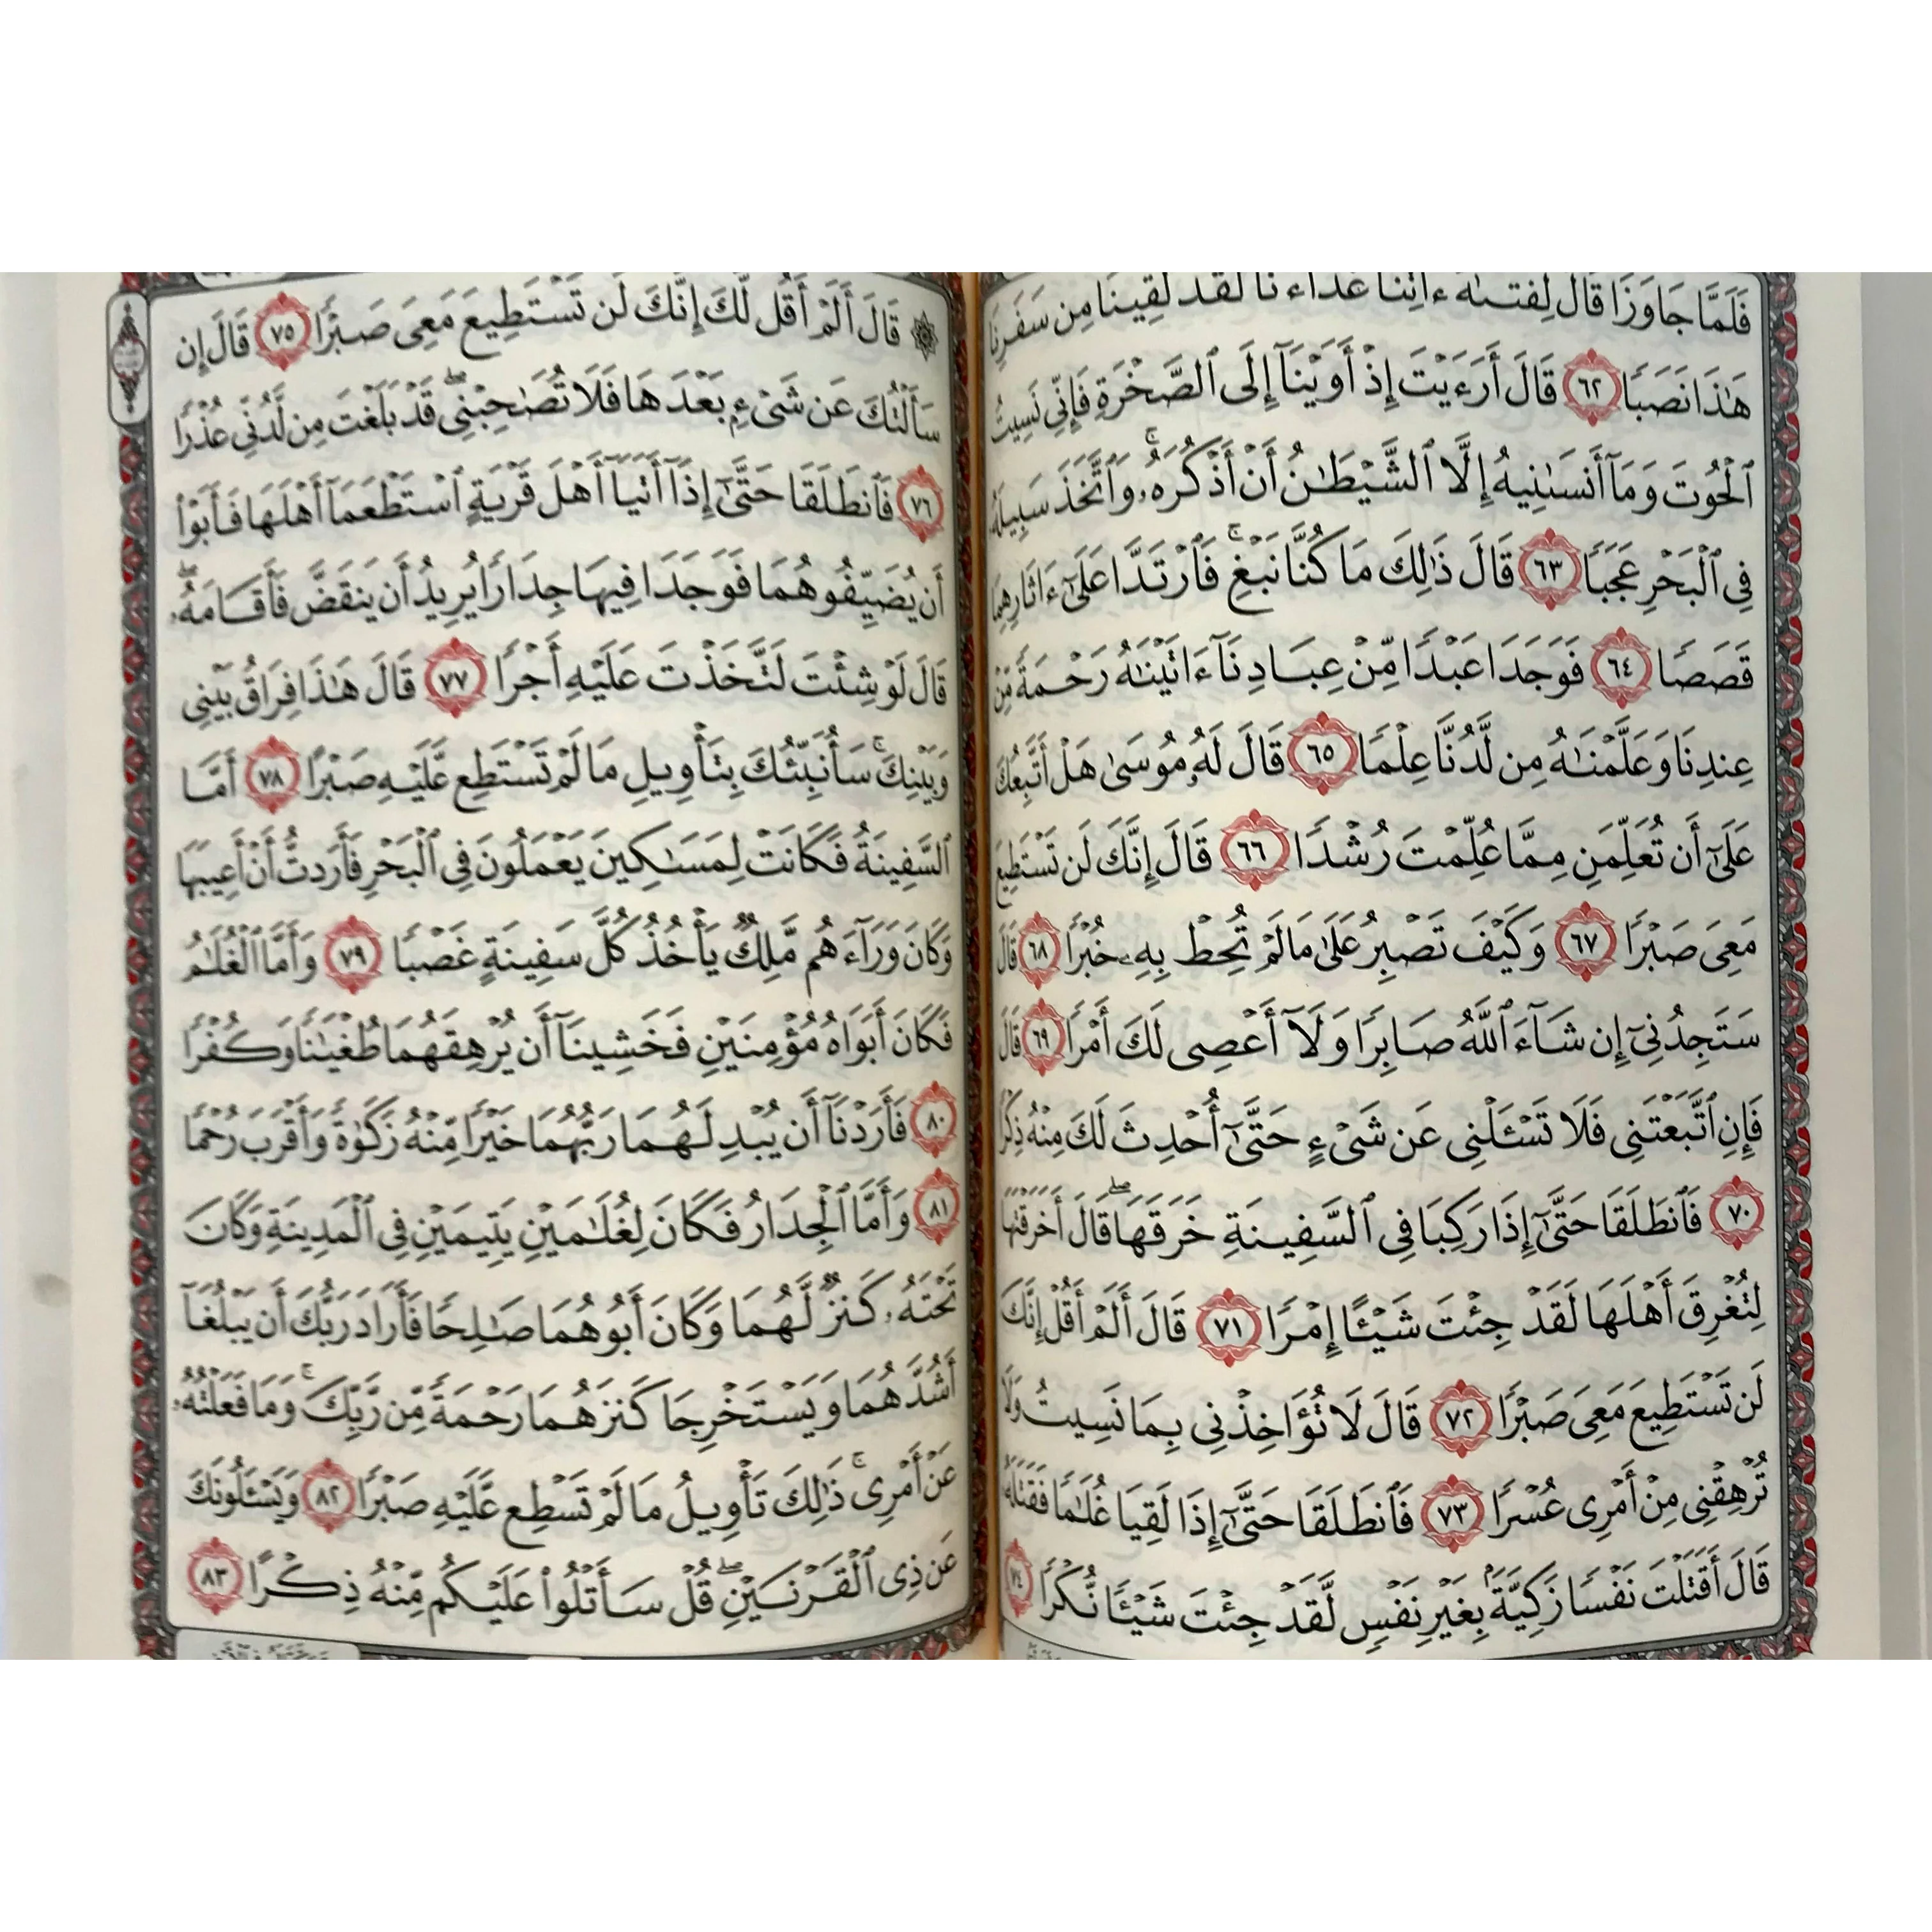 فَلَمَّا جَاوَزَا قَالَ لِفَتَىٰهُ ءَاتِنَا غَدَآءَنَا لَقَدْ لَقِينَا مِن سَفَرِنَا
هَٰذَا نَصَبًا ٦٢ قَالَ أَرَءَيْتَ إِذْ أَوَيْنَآ إِلَى ٱلصَّخْرَةِ فَإِنِّى نَسِيتُ
ٱلْحُوتَ وَمَآ أَنسَىٰنِيهُ إِلَّا ٱلشَّيْطَٰنُ أَنْ أَذْكُرَهُۥ ۚ وَٱتَّخَذَ سَبِيلَهُۥ
فِى ٱلْبَحْرِ عَجَبًا ٦٣ قَالَ ذَٰلِكَ مَا كُنَّا نَبْغِ ۚ فَٱرْتَدَّا عَلَىٰٓ ءَاثَارِهِمَا
قَصَصًا ٦٤ فَوَجَدَا عَبْدًا مِّنْ عِبَادِنَآ ءَاتَيْنَٰهُ رَحْمَةً مِّنْ
عِندِنَا وَعَلَّمْنَٰهُ مِن لَّدُنَّا عِلْمًا ٦٥ قَالَ لَهُۥ مُوسَىٰ هَلْ أَتَّبِعُكَ
عَلَىٰٓ أَن تُعَلِّمَنِ مِمَّا عُلِّمْتَ رُشْدًا ٦٦ قَالَ إِنَّكَ لَن تَسْتَطِيعَ
مَعِىَ صَبْرًا ٦٧ وَكَيْفَ تَصْبِرُ عَلَىٰ مَا لَمْ تُحِطْ بِهِۦ خُبْرًا ٦٨ قَالَ
سَتَجِدُنِىٓ إِن شَآءَ ٱللَّهُ صَابِرًا وَلَآ أَعْصِى لَكَ أَمْرًا ٦٩ قَالَ
فَإِنِ ٱتَّبَعْتَنِى فَلَا تَسْـَٔلْنِى عَن شَىْءٍ حَتَّىٰٓ أُحْدِثَ لَكَ مِنْهُ ذِكْرًا
٧٠ فَٱنطَلَقَا حَتَّىٰٓ إِذَا رَكِبَا فِى ٱلسَّفِينَةِ خَرَقَهَا ۖ قَالَ أَخَرَقْتَهَا
لِتُغْرِقَ أَهْلَهَا لَقَدْ جِئْتَ شَيْـًٔا إِمْرًا ٧١ قَالَ أَلَمْ أَقُلْ إِنَّكَ
لَن تَسْتَطِيعَ مَعِىَ صَبْرًا ٧٢ قَالَ لَا تُؤَاخِذْنِى بِمَا نَسِيتُ وَلَا
تُرْهِقْنِى مِنْ أَمْرِى عُسْرًا ٧٣ فَٱنطَلَقَا حَتَّىٰٓ إِذَا لَقِيَا غُلَٰمًا فَقَتَلَهُۥ
قَالَ أَقَتَلْتَ نَفْسًا زَكِيَّةًۢ بِغَيْرِ نَفْسٍ لَّقَدْ جِئْتَ شَيْـًٔا نُّكْرًا ٧٤
۞ قَالَ أَلَمْ أَقُل لَّكَ إِنَّكَ لَن تَسْتَطِيعَ مَعِىَ صَبْرًا ٧٥ قَالَ إِن
سَأَلْتُكَ عَن شَىْءٍۭ بَعْدَهَا فَلَا تُصَٰحِبْنِى ۖ قَدْ بَلَغْتَ مِن لَّدُنِّى عُذْرًا
٧٦ فَٱنطَلَقَا حَتَّىٰٓ إِذَآ أَتَيَآ أَهْلَ قَرْيَةٍ ٱسْتَطْعَمَآ أَهْلَهَا فَأَبَوْا۟
أَن يُضَيِّفُوهُمَا فَوَجَدَا فِيهَا جِدَارًا يُرِيدُ أَن يَنقَضَّ فَأَقَامَهُۥ ۖ
قَالَ لَوْ شِئْتَ لَتَّخَذْتَ عَلَيْهِ أَجْرًا ٧٧ قَالَ هَٰذَا فِرَاقُ بَيْنِى
وَبَيْنِكَ ۚ سَأُنَبِّئُكَ بِتَأْوِيلِ مَا لَمْ تَسْتَطِع عَّلَيْهِ صَبْرًا ٧٨ أَمَّا
ٱلسَّفِينَةُ فَكَانَتْ لِمَسَٰكِينَ يَعْمَلُونَ فِى ٱلْبَحْرِ فَأَرَدتُّ أَنْ أَعِيبَهَا
وَكَانَ وَرَآءَهُم مَّلِكٌ يَأْخُذُ كُلَّ سَفِينَةٍ غَصْبًا ٧٩ وَأَمَّا ٱلْغُلَٰمُ
فَكَانَ أَبَوَاهُ مُؤْمِنَيْنِ فَخَشِينَآ أَن يُرْهِقَهُمَا طُغْيَٰنًا وَكُفْرًا
٨٠ فَأَرَدْنَآ أَن يُبْدِلَهُمَا رَبُّهُمَا خَيْرًا مِّنْهُ زَكَوٰةً وَأَقْرَبَ رُحْمًا
٨١ وَأَمَّا ٱلْجِدَارُ فَكَانَ لِغُلَٰمَيْنِ يَتِيمَيْنِ فِى ٱلْمَدِينَةِ وَكَانَ
تَحْتَهُۥ كَنزٌ لَّهُمَا وَكَانَ أَبُوهُمَا صَٰلِحًا فَأَرَادَ رَبُّكَ أَن يَبْلُغَآ
أَشُدَّهُمَا وَيَسْتَخْرِجَا كَنزَهُمَا رَحْمَةً مِّن رَّبِّكَ ۚ وَمَا فَعَلْتُهُۥ
عَنْ أَمْرِى ۚ ذَٰلِكَ تَأْوِيلُ مَا لَمْ تَسْطِع عَّلَيْهِ صَبْرًا ٨٢ وَيَسْـَٔلُونَكَ
عَن ذِى ٱلْقَرْنَيْنِ ۖ قُلْ سَأَتْلُوا۟ عَلَيْكُم مِّنْهُ ذِكْرًا ٨٣